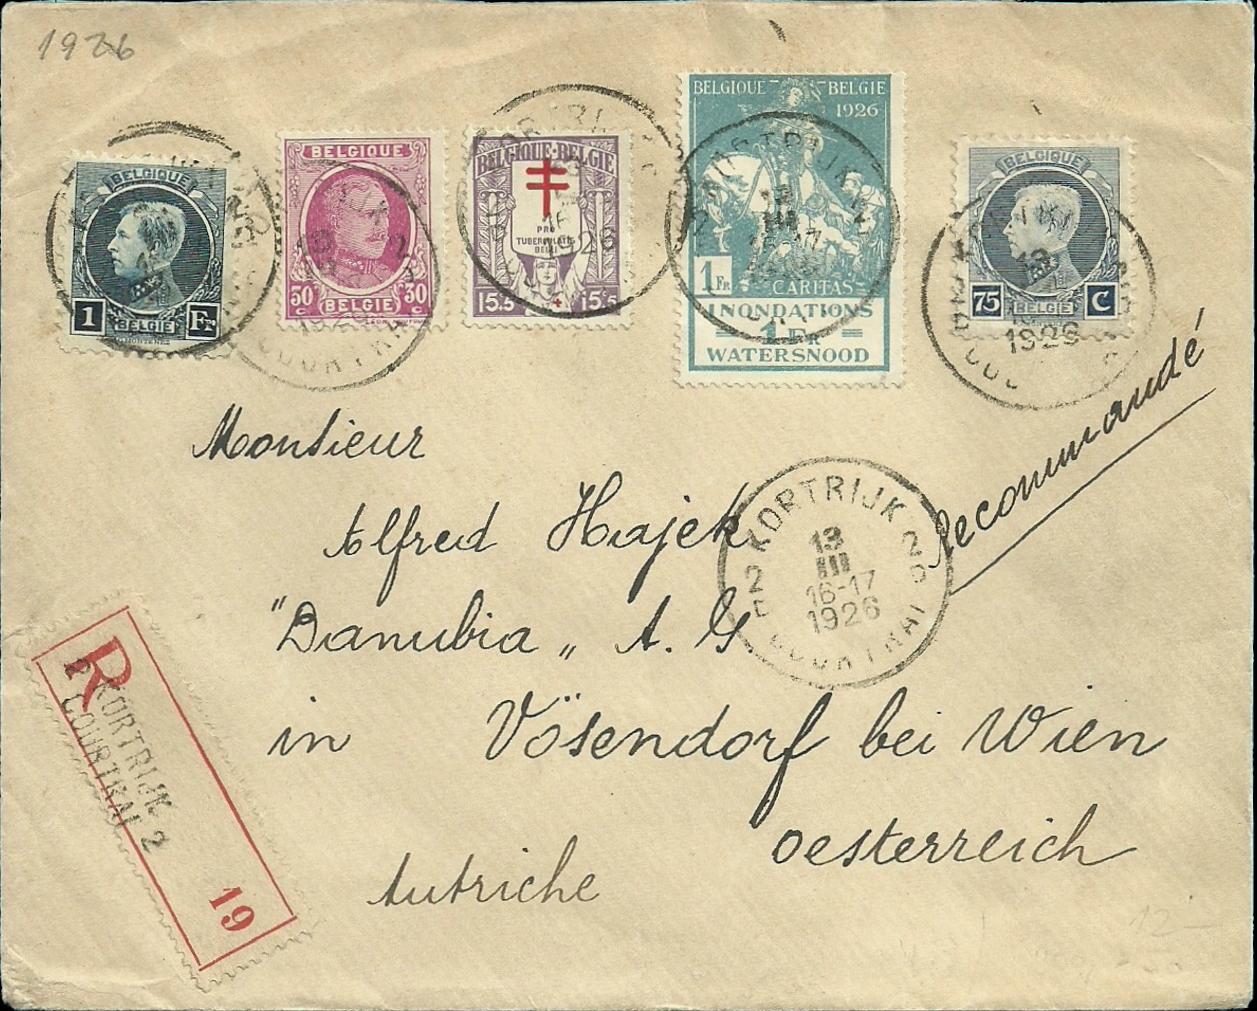 1926
BELGIQUE
1 Fr
BELGIË
BELGIQUE
30 30
c BELGIË c
BELGIQUE-BELGIË
PRO
TUBERCULATIS
BELGI
15.5 15.5
BELGIQUE BELGIE
1926
1Fr
CARITAS
INONDATIONS
1 Fr
WATERSNOOD
BELGIQUE
75 C
BELGIË
1926
1926
Recommandé
Monsieur
Alfred Hajek
"Danubia" A. G.
in Vösendorf bei Wien
Oesterreich
Autriche
KORTRIJK 2
13
III
16-17
1926
COURTRAI 2
R
KORTRIJK
COURTRAI 2
19
12-